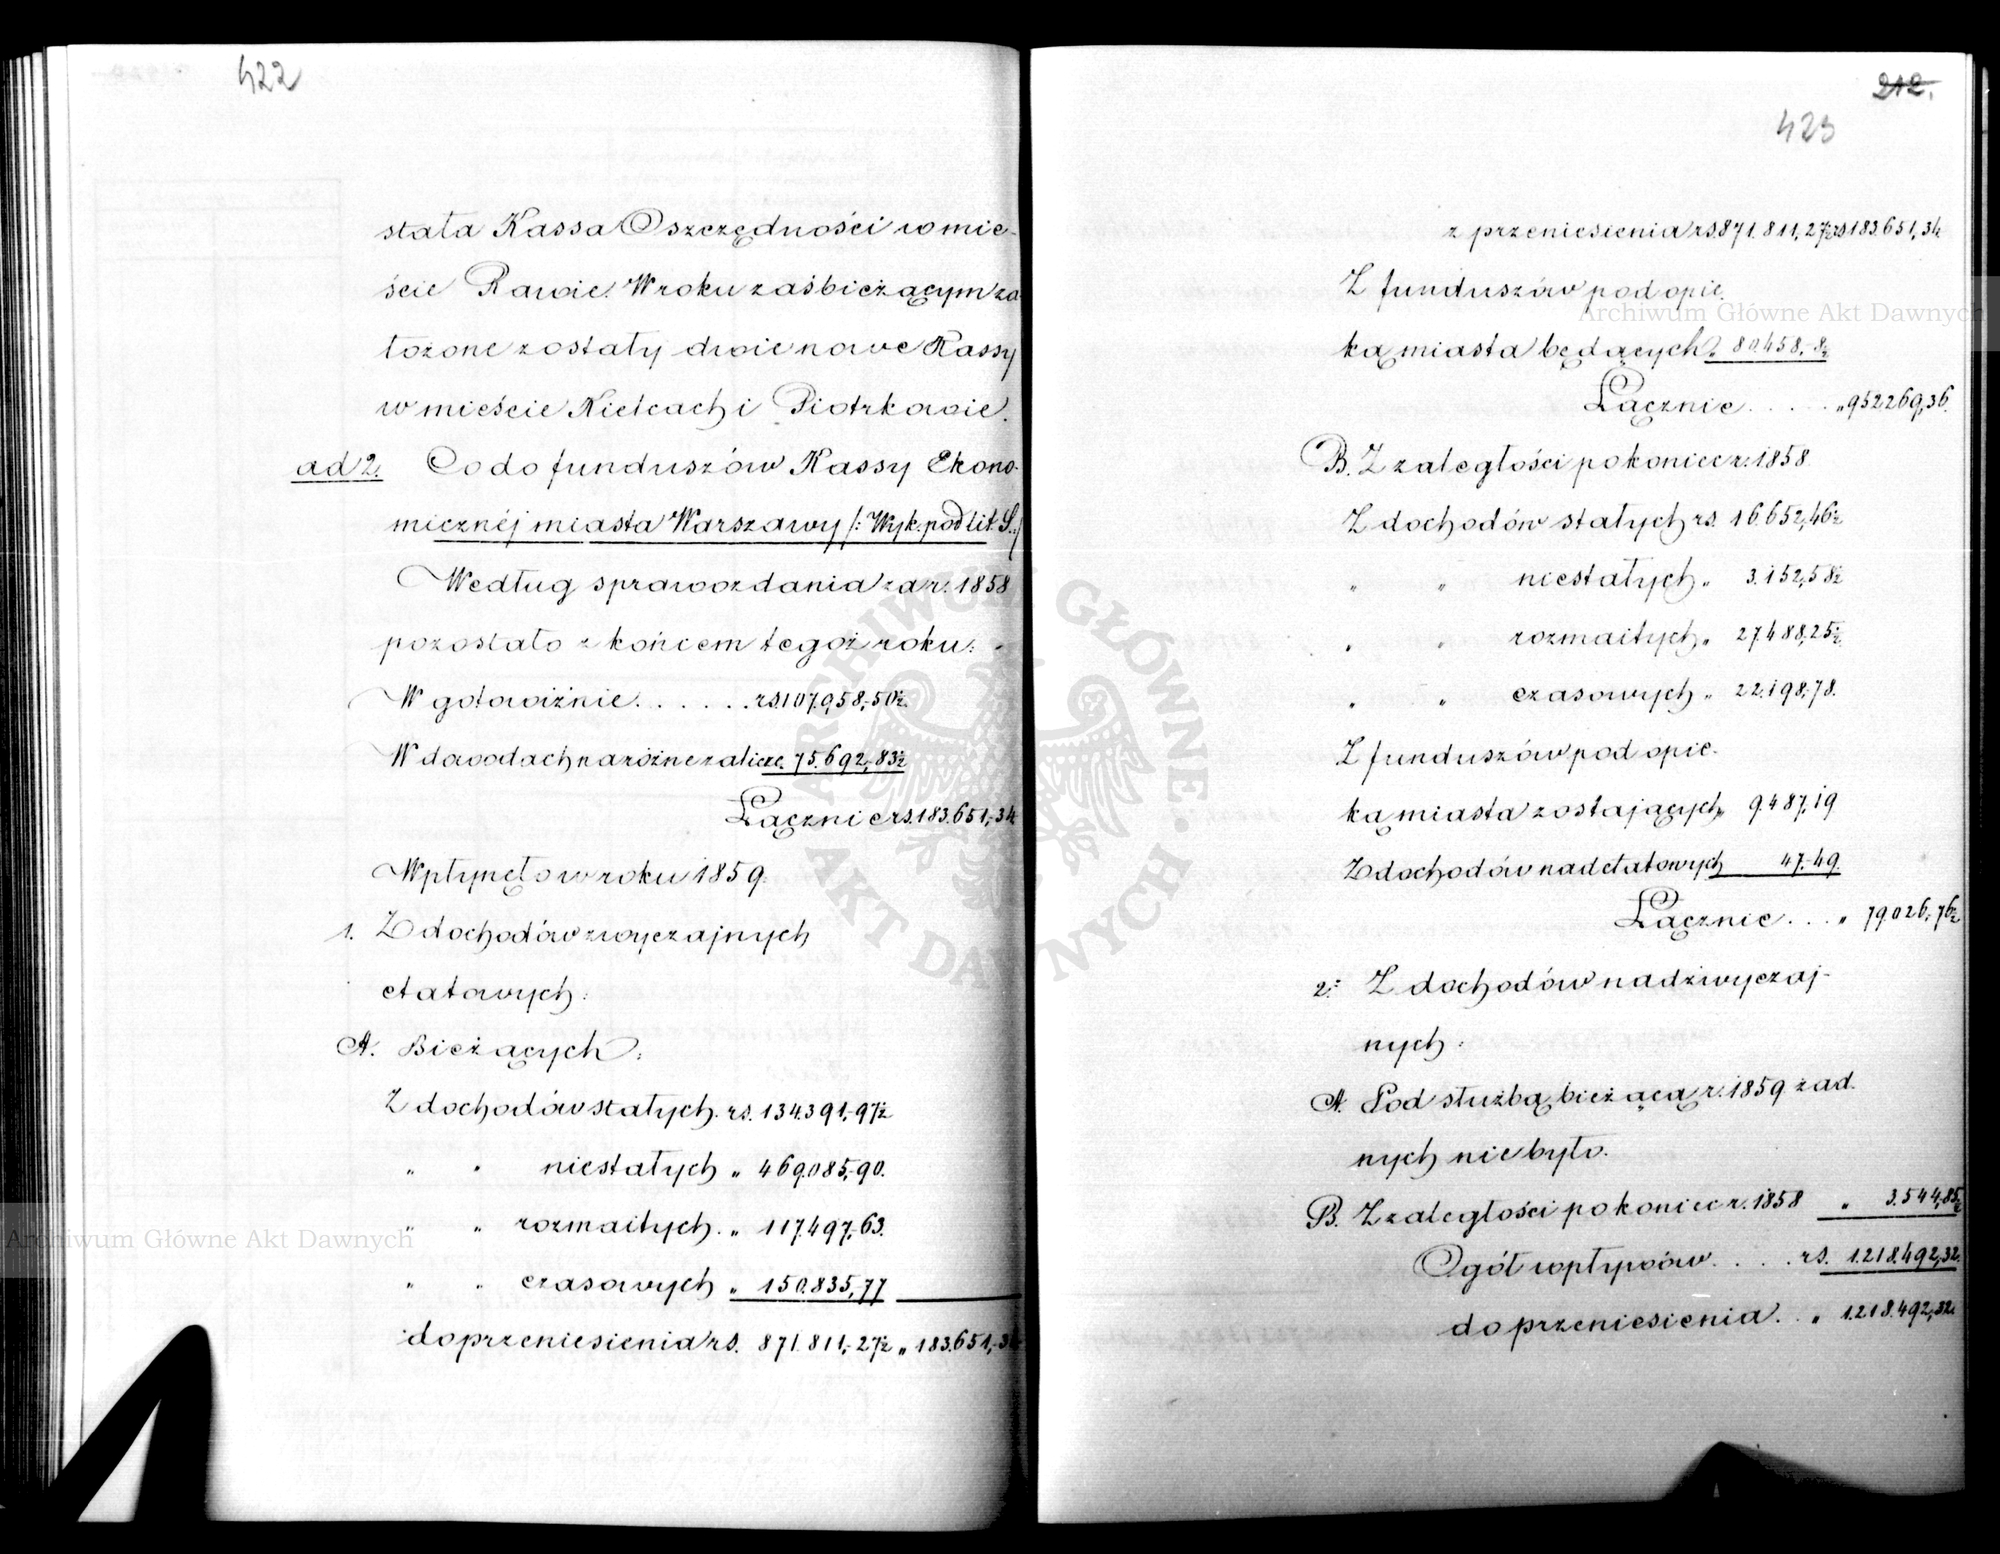 422
stała Kassa Oszczędności w mie-
ście Rawie. W roku zaś bieżącym za
łożone zostały dwie nowe Kassy
w mieście Kielcach i Piotrkowie.
ad 2. Co do funduszów Kassy Ekono-
micznéj miasta Warszawy /: Wyk. pod lit. S. :/
Według sprawozdania za r. 1858
pozostało z końcem tegoż roku:
W gotowiźnie . . . . . . rs. 107.958,-50½.
W dowodach na różne zalicze. 75.692,-83½
Łącznie rs. 183.651,-34
Wpłynęło w roku 1859.
1. Z dochodów zwyczajnych
etatowych:
A. Bieżących:
Z dochodów stałych. rs. 134.391,-97½
" " niestałych " 469.085,-90.
" " rozmaitych. " 117.497,-63.
" " czasowych " 150.835,77
do przeniesienia rs. 871.811,-27½ " 183.651,-34
212.
423
z przeniesienia rs. 871.811,27½ rs 183.651,34
Z funduszów pod opie-
ką miasta będących " 80.458,-8½
Łącznie . . . . . " 952269,36.
B. Z zaległości po koniec r. 1858.
Z dochodów stałych rs. 16.652,46½
" " niestałych " 3.152,58½
" " rozmaitych " 27.488,25½
" " czasowych " 22.198,-78.
Z funduszów pod opie-
ką miasta zostających " 9.487,19
Z dochodów nadetatowych 47.-49.
Łącznie . . . " 79.026,-76½
2. Z dochodów nadzwyczaj-
nych:
A. Pod służbą bieżącą r. 1859 żad
nych nie było.
B. Z zaległości po koniec r. 1858 " 3.544,-85½
Ogół wpływów . . . . rs. 1.218.492,32.
do przeniesienia. . " 1.218.492,32.
Archiwum Główne Akt Dawnych
Archiwum Główne Akt Dawnych
ARCHIWUM GŁÓWNE • AKT DAWNYCH •